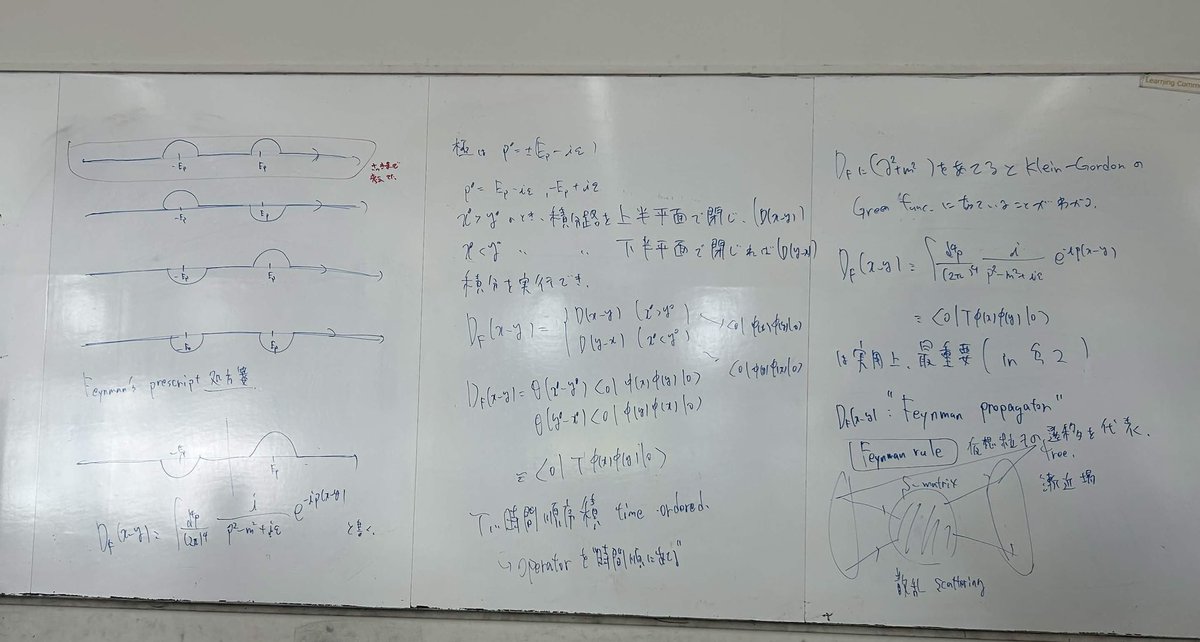 -Ep Ep
-Ep Ep
-Ep Ep
-Ep Ep
Feynman's prescript 処方箋
-Ep Ep
D_F(x-y) = ∫ d⁴p/(2π)⁴ i/(p²-m²+iε) e^{-ip(x-y)} と書く.
極は p⁰=±(Ep-iε)
p⁰= Ep-iε, -Ep+iε
x⁰>y⁰ のとき、積分路を上半平面で閉じ、(D(x-y))
x⁰<y⁰ 〃 〃 下半平面で閉じれば (D(y-x))
積分を実行でき、
D_F(x-y) = { D(x-y) (x⁰>y⁰) → <0|φ(x)φ(y)|0>
D(y-x) (x⁰<y⁰) → <0|φ(y)φ(x)|0>
D_F(x-y) = θ(x⁰-y⁰)<0|φ(x)φ(y)|0>
θ(y⁰-x⁰)<0|φ(y)φ(x)|0>
≡ <0|Tφ(x)φ(y)|0>
T:時間順序積 time-ordered.
↳ operator を "時間順に並べる"
Learning Comm
D_F に (∂²+m²) をあてると Klein-Gordon の
Green func. になっていることがわかる.
D_F(x-y) = ∫ d⁴p/(2π)⁴ i/(p²-m²+iε) e^{-ip(x-y)}
= <0|Tφ(x)φ(y)|0>
は実用上、最重要 (in §2)
D_F(x-y) : "Feynman propagator"
Feynman rule 仮想粒子の遷移を代表.
S-matrix free.
漸近場
散乱 scattering